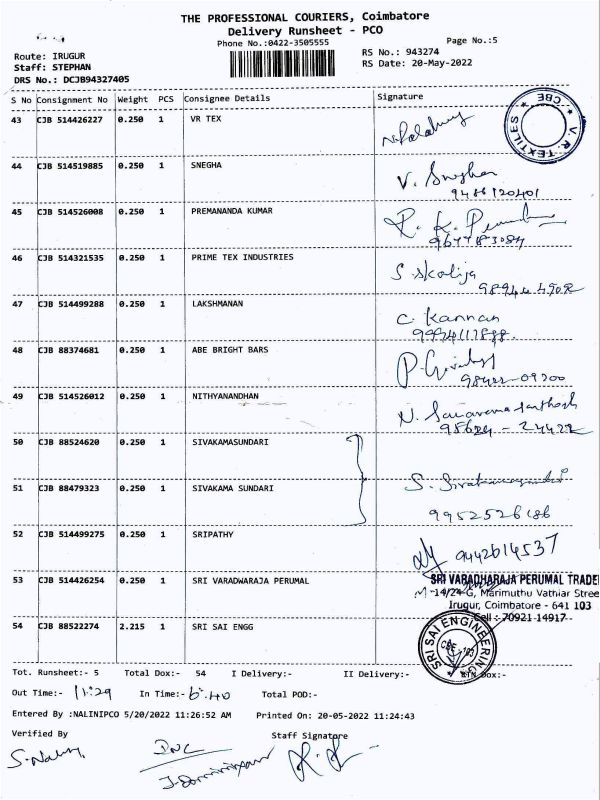 THE PROFESSIONAL COURIERS, Coimbatore
Delivery Runsheet - PCO
Phone No.:0422-3505555
Page No.:5
Route: IRUGUR
Staff: STEPHAN
DRS No.: DCJB94327405
RS No.: 943274
RS Date: 20-May-2022
S No Consignment No Weight PCS Consignee Details Signature
43 CJB 514426227 0.250 1 VR TEX
V.R. TEXTILES CBE
44 CJB 514519885 0.250 1 SNEGHA
V.
9486120401
45 CJB 514526008 0.250 1 PREMANANDA KUMAR
46 CJB 514321535 0.250 1 PRIME TEX INDUSTRIES
47 CJB 514499288 0.250 1 LAKSHMANAN
C. Kannan
48 CJB 88374681 0.250 1 ABE BRIGHT BARS
98422-09200
49 CJB 514526012 0.250 1 NITHYANANDHAN
50 CJB 88524620 0.250 1 SIVAKAMASUNDARI
51 CJB 88479323 0.250 1 SIVAKAMA SUNDARI
9952526186
52 CJB 514499275 0.250 1 SRIPATHY
9442614537
53 CJB 514426254 0.250 1 SRI VARADWARAJA PERUMAL
SRI VARADHARAJA PERUMAL TRADE
14/24-G, Marimuthu Vathiar Stree
Irugur, Coimbatore - 641 103
Cell : 70921 14917
54 CJB 88522274 2.215 1 SRI SAI ENGG
SRI SAI ENGINEERING
Tot. Runsheet:- 5 Total Dox:- 54 I Delivery:- II Delivery:- RTN Dox:-
Out Time:- 11:29 In Time:- 6.40 Total POD:-
Entered By :NALINIPCO 5/20/2022 11:26:52 AM Printed On: 20-05-2022 11:24:43
Verified By Staff Signature